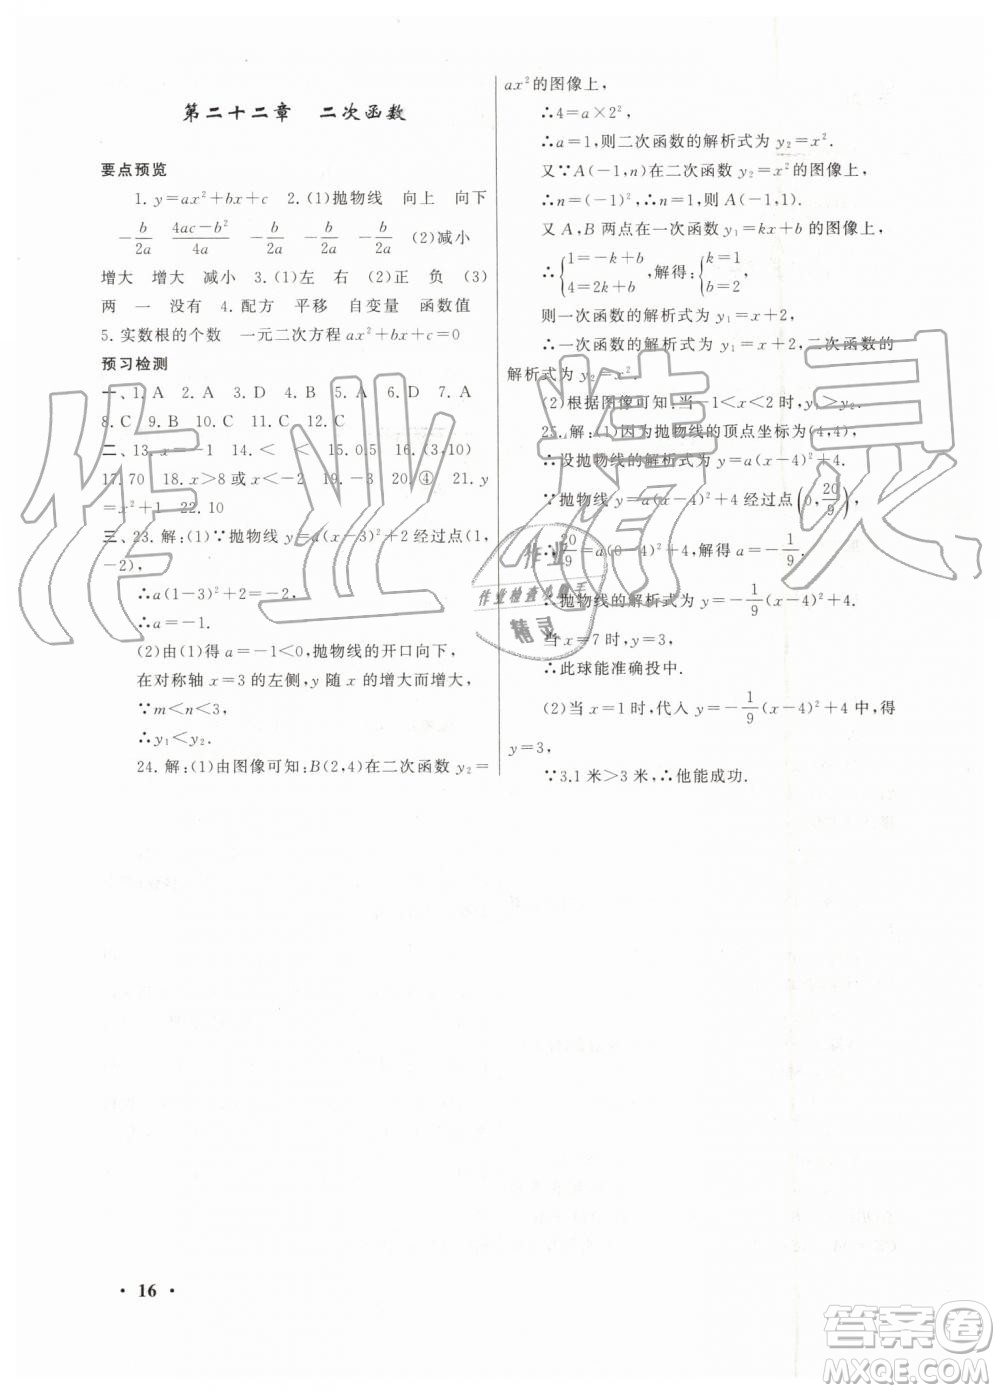 第二十二章 二次函数
要点预览
1. y=ax²+bx+c 2. (1)抛物线 向上 向下
-b/2a (4ac-b²)/4a -b/2a -b/2a (2)减小
增大 增大 减小 3. (1)左 右 (2)正 负 (3)
两 一 没有 4. 配方 平移 自变量 函数值
5. 实数根的个数 一元二次方程 ax²+bx+c=0
预习检测
一、1. A 2. A 3. D 4. A 5. A 6. D 7. A
8. C 9. B 10. C 11. C 12. B
二、13. x=-1 14. < < 15. 0.5 16. (3,10)
17. 70 18. x>8或x<-2 19. -3 20. ④ 21. y
=x²+1 22. 10
三、23. 解:(1)∵抛物线 y=a(x-3)²+2经过点(1,
-2),
∴a(1-3)²+2=-2,
∴a=-1.
(2)由(1)得 a=-1<0,抛物线的开口向下,
在对称轴 x=3 的左侧,y 随 x 的增大而增大,
∵m<n<3,
∴y₁<y₂.
24. 解:(1)由图像可知:B(2,4)在二次函数 y₂=
ax²的图像上,
∴4=a×2²,
∴a=1,则二次函数的解析式为 y₂=x².
又∵A(-1,n)在二次函数 y₂=x²的图像上,
∴n=(-1)²,∴n=1,则 A(-1,1).
又 A,B 两点在一次函数 y₁=kx+b 的图像上,
∴{1=-k+b 4=2k+b,解得:{k=1 b=2
则一次函数的解析式为 y₁=x+2,
∴一次函数的解析式为 y₁=x+2,二次函数的
解析式为 y₂=x².
(2)根据图像可知:当-1<x<2时,y₁>y₂.
25. 解:(1)因为抛物线的顶点坐标为(4,4),
∴设抛物线的解析式为 y=a(x-4)²+4.
∵抛物线 y=a(x-4)²+4 经过点(0,20/9),
∴20/9=a(0-4)²+4,解得 a=-1/9,
∴抛物线的解析式为 y=-1/9(x-4)²+4.
当 x=7 时,y=3,
∴此球能准确投中.
(2)当 x=1 时,代入 y=-1/9(x-4)²+4 中,得
y=3,
∵3.1米>3米,∴他能成功.
· 16 ·
作业精灵
作业
作业检查小助手
精灵
答案圈
MXQE.COM